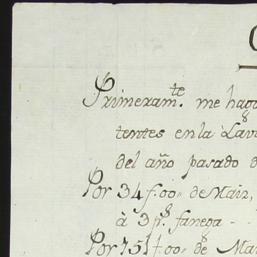 Primeram.te me hago
tentes en la Lav
del año pasado d
Por 34 f.00 de Maiz,
à 3 p.s fanega - -
Por 751 f.00 de Ma